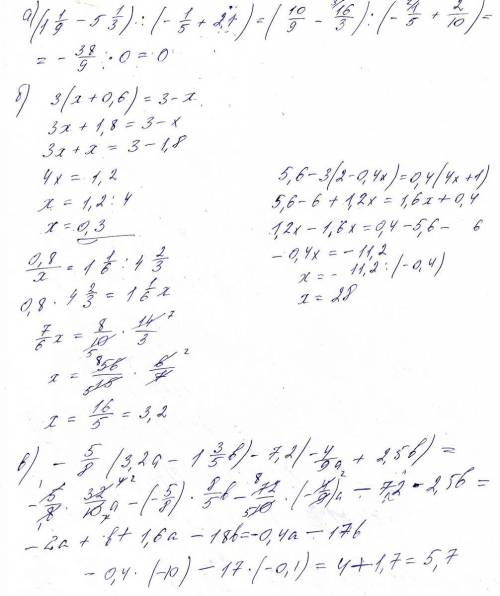 а) (1 1/9 - 5 1/3) : (- 1/5 + 21) = (10/9 - 16/3) : (- 1/5 + 2/10) =
= - 38/9 : 0 = 0
б) 3(x+0,6) = 3-x
3x + 1,8 = 3 - x
3x + x = 3 - 1,8
4x = 1,2
x = 1,2 : 4
x = 0,3
0,8/x = 1 1/6 : 4 2/3
0,8 · 4 2/3 = 1 1/6 x
7/6 x = 8/10 · 14/3
x = 56/15 · 6/7
x = 16/5 = 3,2
5,6-3(2-0,4x)=0,4(4x+1)
5,6-6+1,2x = 1,6x+0,4
1,2x-1,6x=0,4-5,6- 6
-0,4x = -11,2
x = - 11,2 : (-0,4)
x = 28
в) - 5/8 (3,2a - 1 3/5 b) - 7,2(- 4/9 a + 2,5b) =
- 5/8 · 32/10 a - (- 5/8) · 8/5 b - 72/10 · (- 4/9) a - 7,2 · 2,5b =
- 2a + b + 1,6a - 18b = -0,4a - 17b
- 0,4 · (-10) - 17 · (-0,1) = 4 + 1,7 = 5,7